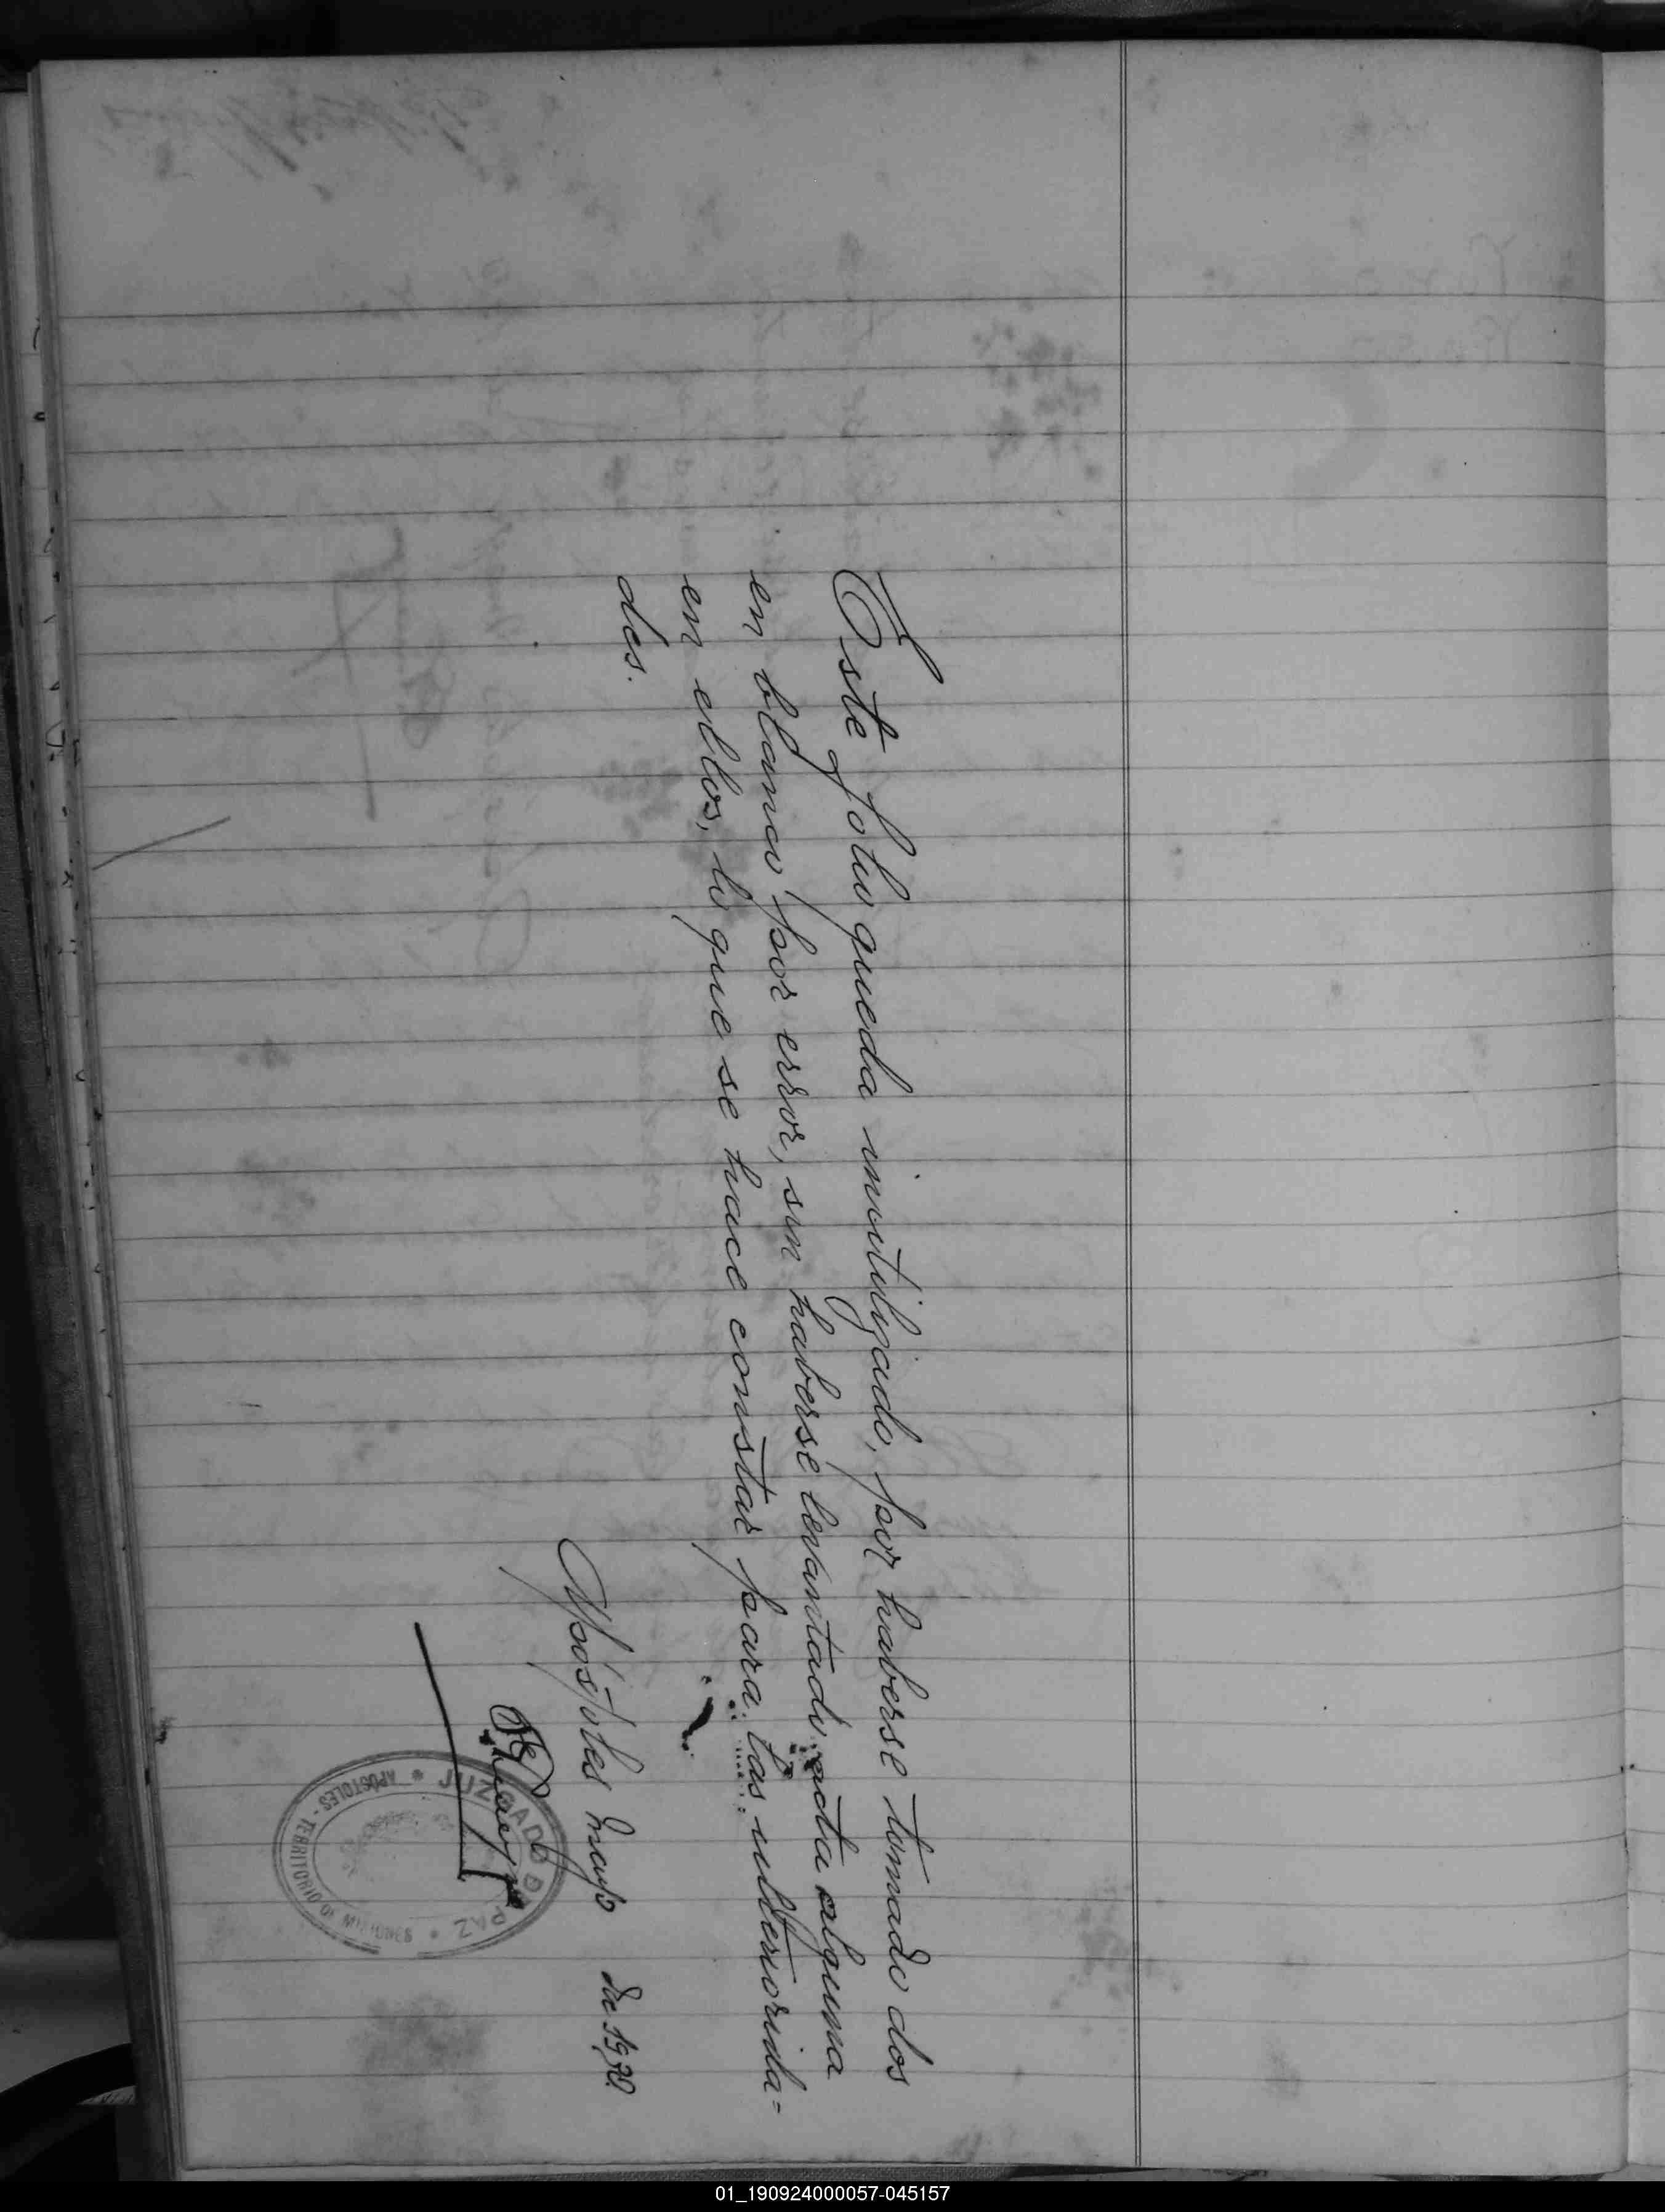 Este folio queda inutilizado, por haberse tomado dos
en blanco por error, sin haberse levantado acta alguna
en ellos, lo que se hace constar para las ulteriorida=
des.
Apóstoles mayo de 1920
JUZGADO DE PAZ
APÓSTOLES - TERRITORIO D. MISIONES
01_190924000057-045157